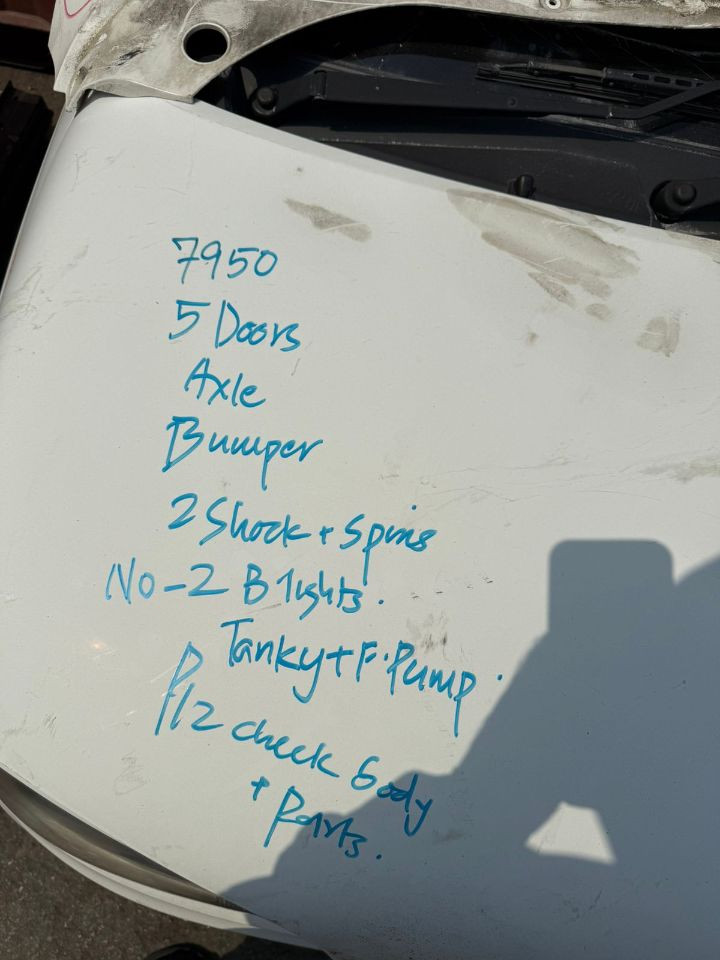 7950
5 Doors
Axle
Bumper
2 Shock + Spins
No - 2 B lights.
Tanky + F. Pump.
Plz check body
+ Parts.